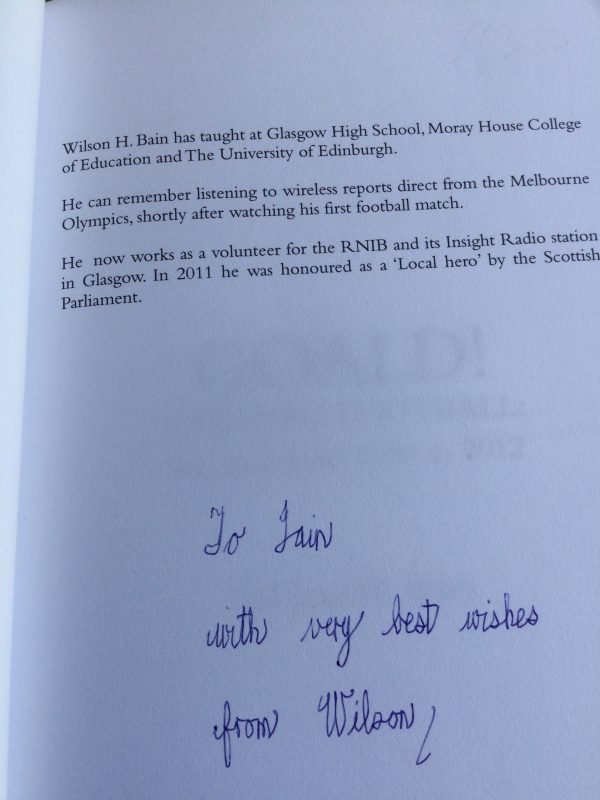 Wilson H. Bain has taught at Glasgow High School, Moray House College
of Education and The University of Edinburgh.
He can remember listening to wireless reports direct from the Melbourne
Olympics, shortly after watching his first football match.
He now works as a volunteer for the RNIB and its Insight Radio station
in Glasgow. In 2011 he was honoured as a 'Local hero' by the Scottish
Parliament.
To Iain
with very best wishes
from Wilson